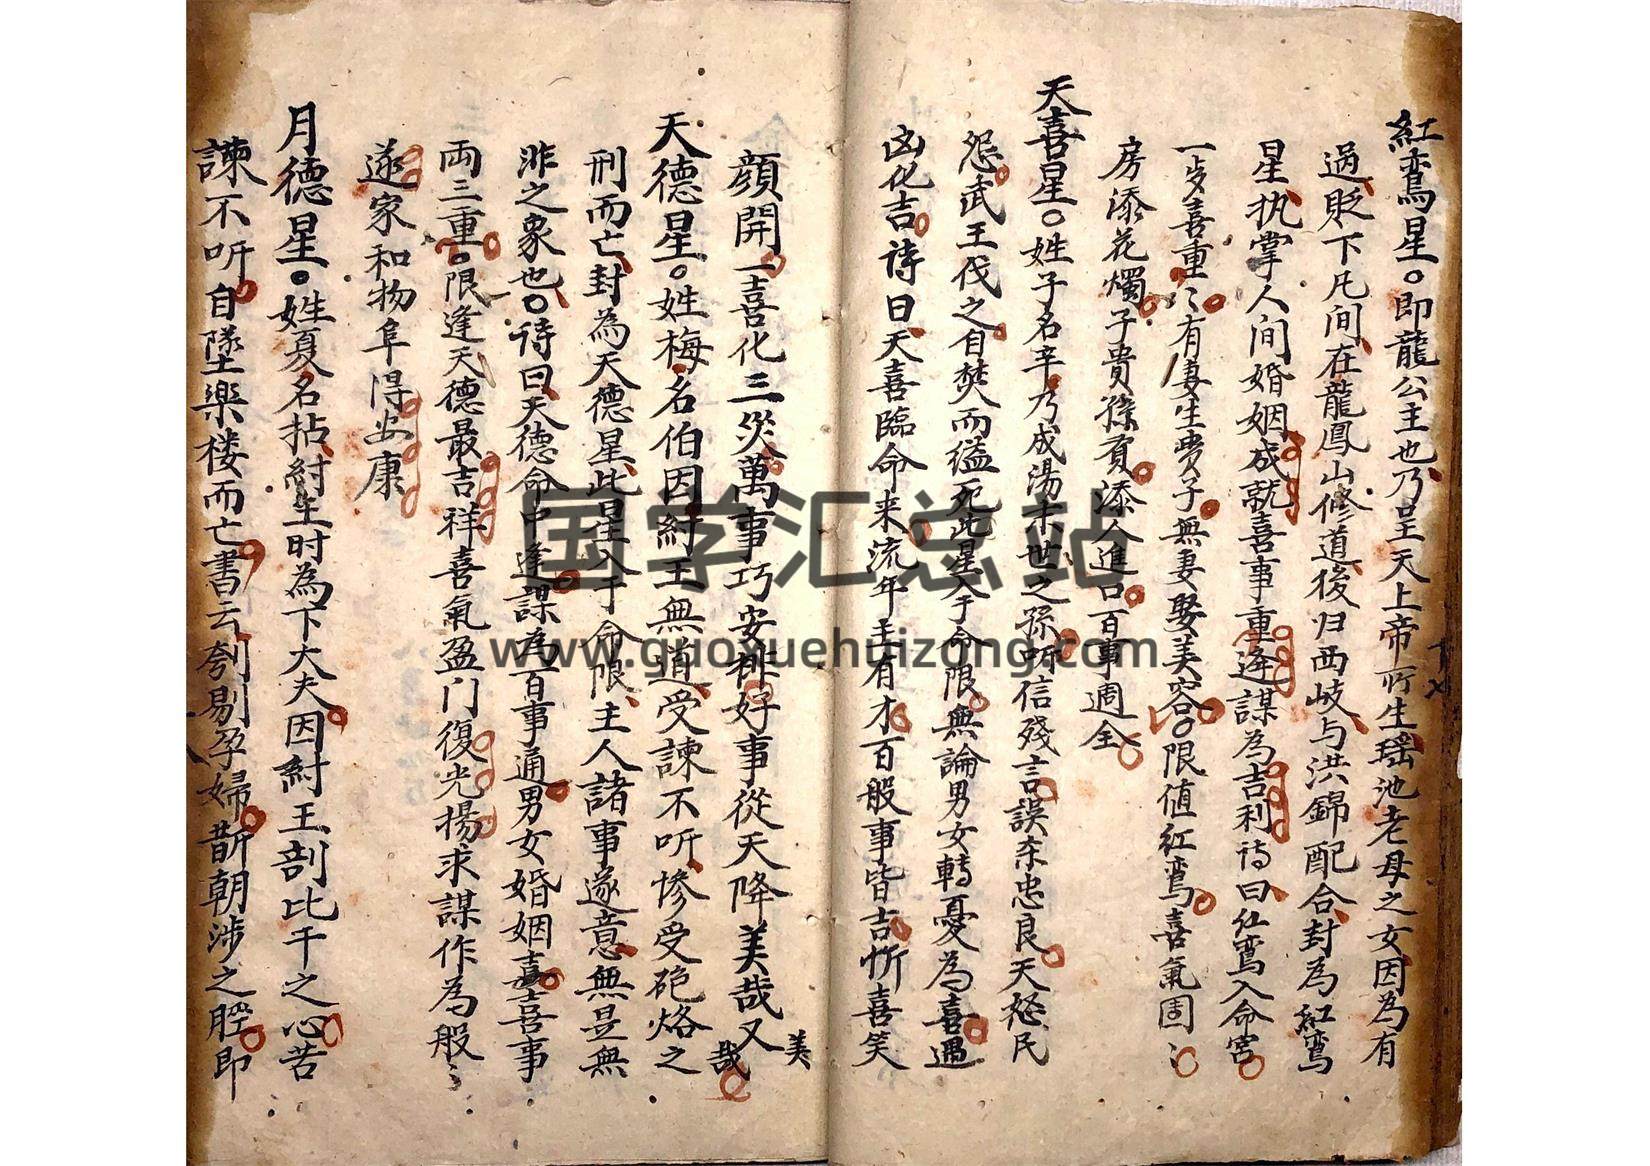 紅鸾星。即龍公主也乃昊天上帝所生瑶池老母之女因為有
過貶下凡間在龍鳳山修道後归西岐与洪錦配合封為紅鸾
星执掌人间婚姻成就喜事重逢謀為吉利诗曰红鸾入命宫
一步喜重〻有妻生贵子無妻娶美容。限值红鸾喜氣固〻
房添花燭子貴孫賢添人進口百事週全
天喜星。姓子名辛乃成湯末世之孫听信殘言誤杀忠良天怒民
怨武王伐之自焚而缢死此星入于命限無論男女轉憂為喜遇
凶化吉诗曰天喜臨命来流年主有才百般事皆吉忻喜笑
顔開一喜化三災萬事巧安排好事從天降美哉又
美
哉
天德星。姓梅名伯因紂王無道受諫不听惨受砲烙之
刑而亡封為天德星此星入于命限主人諸事遂意無是無
非之象也。诗曰天德命中逢謀為百事通男女婚姻喜喜事
両三重。限逢天德最吉祥喜氣盈门復光揚求謀作為般〻
遂家和物阜得安康
月德星。姓夏名拈紂王时為下大夫因紂王剖比干之心苦
諫不听自墜楽楼而亡書云刳剔孕婦斮朝涉之脛即
国学汇总站
www.guoxuehuizong.com